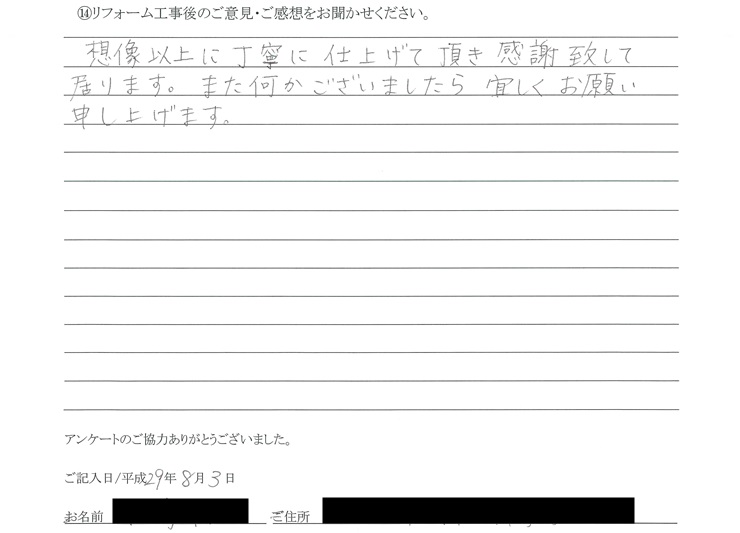 ⑭リフォーム工事後のご意見・ご感想をお聞かせください。
想像以上に丁寧に仕上げて頂き感謝致して
居ります。また何かございましたら宜しくお願い
申し上げます。
アンケートのご協力ありがとうございました。
ご記入日/平成29年8月3日
お名前 ご住所